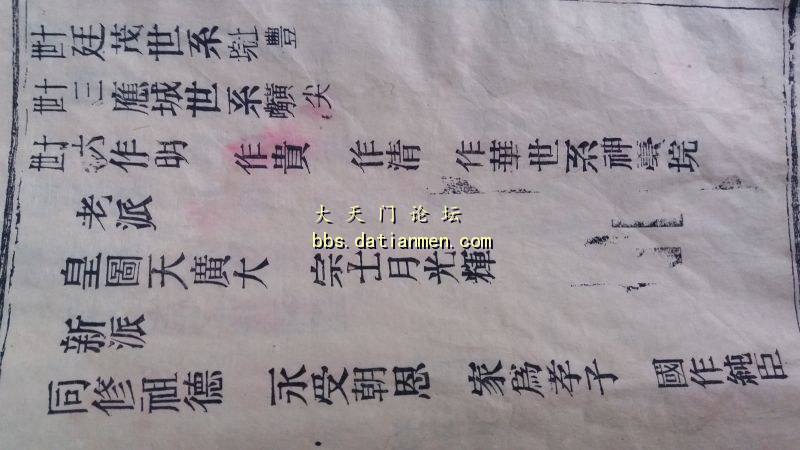 十世廷茂世系
十三世應城世系尖
十六世作明 作貴 作清 作華世系神臺垸
老派
大天门论坛
bbs.datianmen.com
皇圖天廣大 宗士月光輝
新派
同修祖德 永受朝恩 家爲孝子 國作純臣